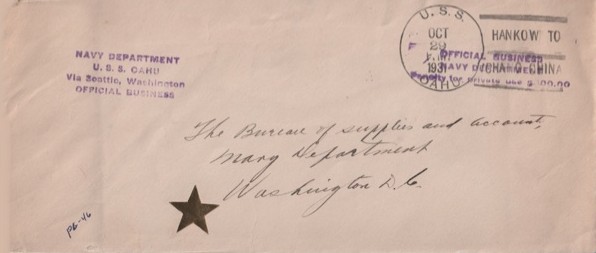 NAVY DEPARTMENT
U. S. S. OAHU
Via Seattle, Washington
OFFICIAL BUSINESS
U. S. S.
OCT
29
1931
OAHU
HANKOW TO
CHINA
OFFICIAL BUSINESS
NAVY DEPARTMENT
Penalty for private use $300.00
The Bureau of supplies and account,
Navy Department
Washington D.C.
PG-46